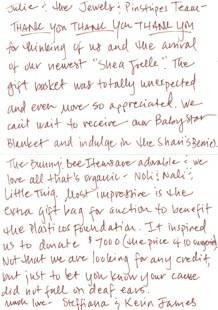 Julie & the Jewels & Pinstripes Team-
THANK YOU THANK YOU THANK YOU
for thinking of us and the arrival
of our newest "Shea Joelle". The
gift basket was totally unexpected
and even more so appreciated. We
can't wait to receive our Babystar
Blanket and indulge in the Shari's Berries.
The Bunny bee items are adorable & we
love all that's organic - Noli & Nali &
Little Twig. Most impressive is the
extra gift bag for auction to benefit
the Haiti Foundation. It inspired
us to donate $700 (the price of 10
Not that we are looking for any credit,
but just to let you know your cause
did not fall on deaf ears.
much love - Steffiana & Kevin James